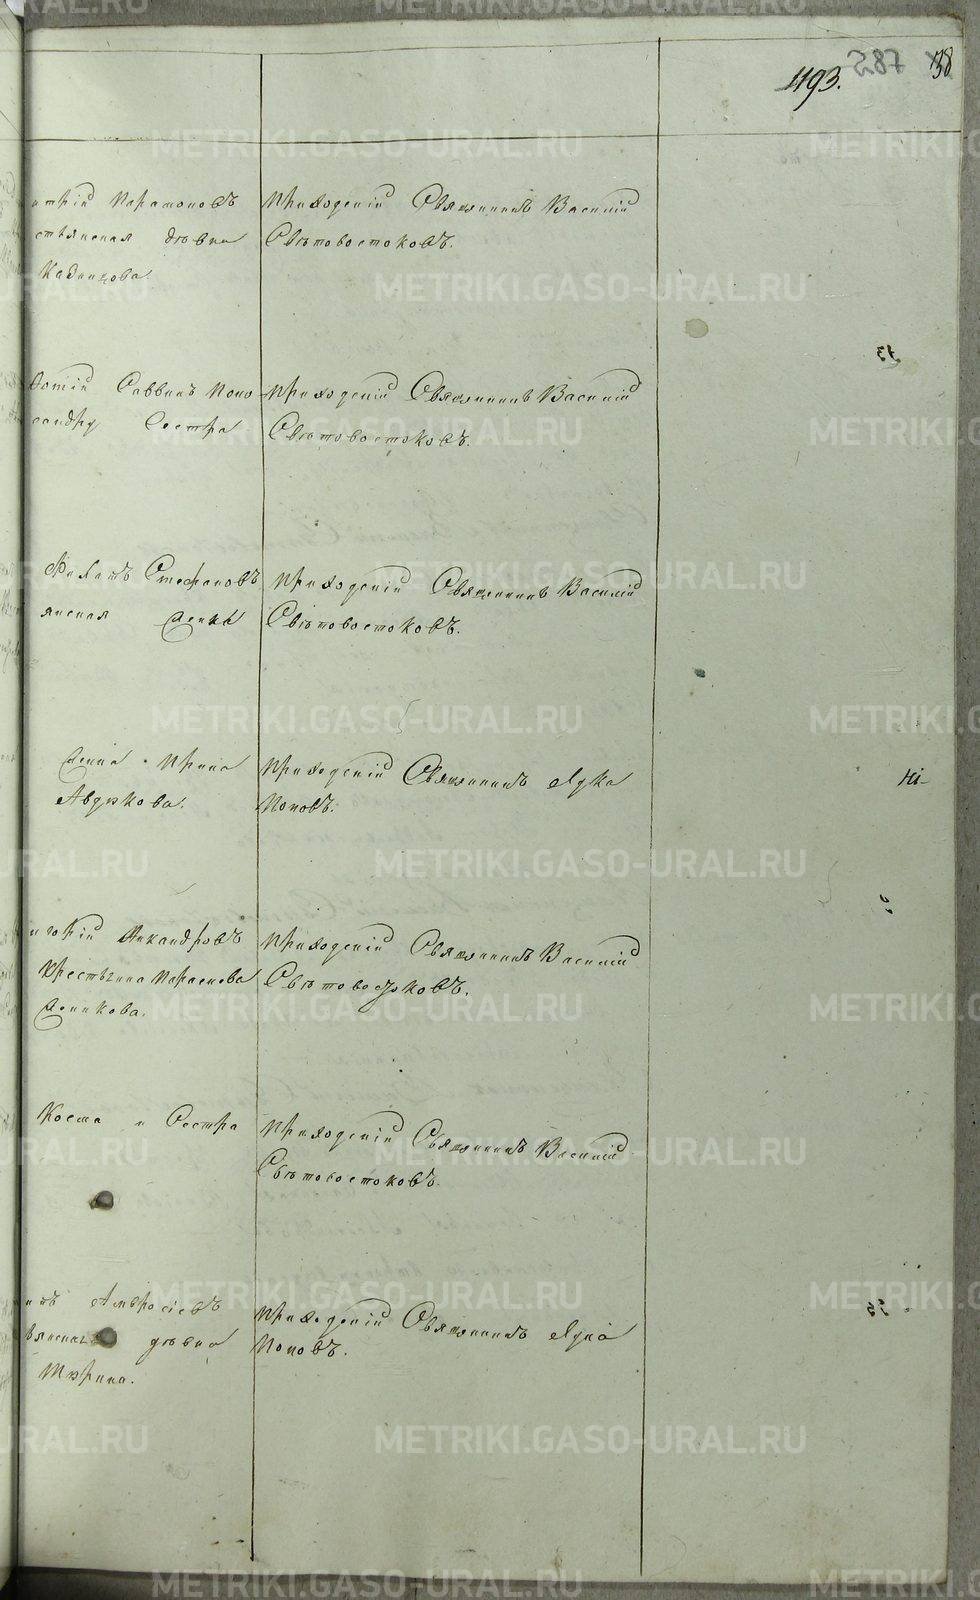 1193.
138
итрій Парамоновъ
стьянская дѣвка
Кадинцова.
Приходскій Священникъ Василій
Свѣтовостоковъ.
Фотій Саввинъ Попо
сандру Сестра
Приходскій Священникъ Василій
Свѣтовостоковъ.
Филатъ Стефановъ
янская
Приходскій Священникъ Василій
Свѣтовостоковъ.
Ирина
Авдюкова.
Приходскій Священникъ Лука
Поповъ.
Никандровъ
Крестьнина
Приходскій Священникъ Василій
Свѣтовостоковъ.
Косма и Сестра
Приходскій Священникъ Василій
Свѣтовостоковъ.
Амвросіевъ
дѣвка
Тюрина.
Приходскій Священникъ Лука
Поповъ.
METRIKI.GASO-URAL.RU